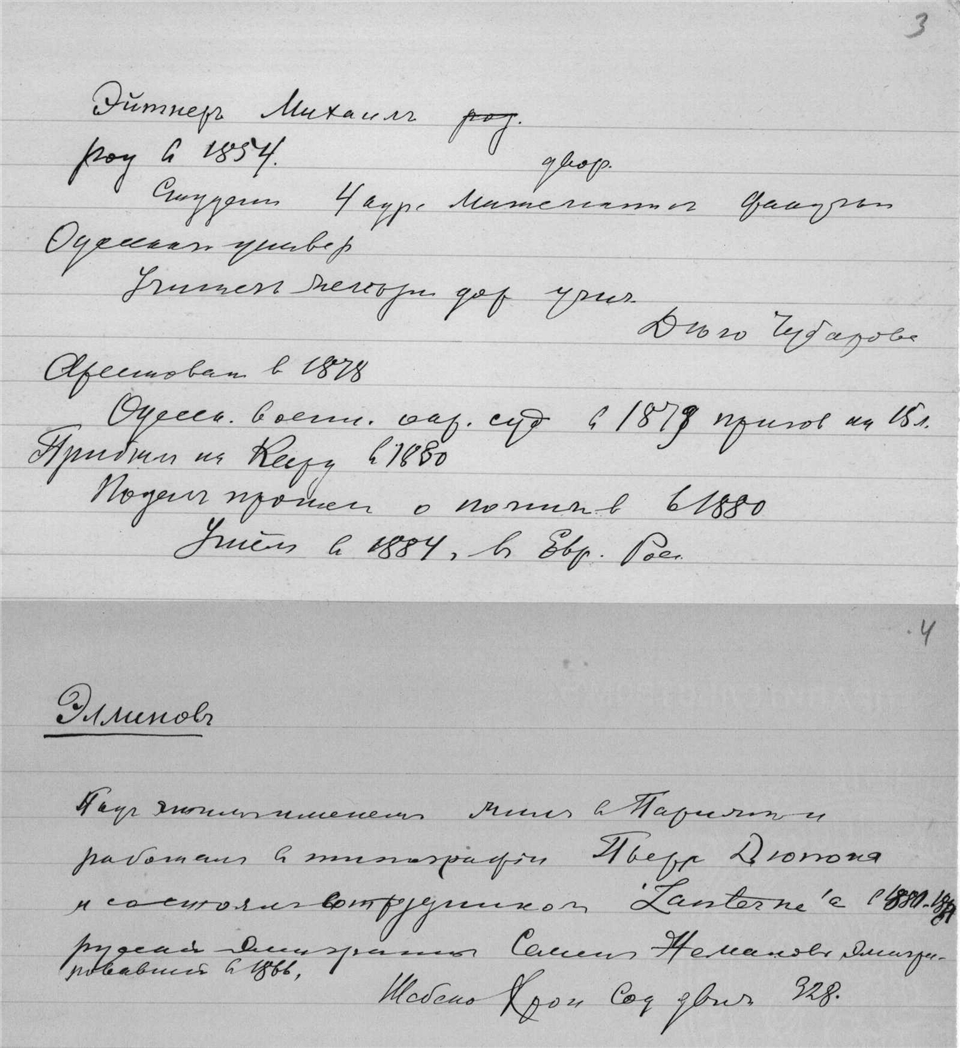 3
Эйтнеръ Михаилъ род.
род в 1854.
двор.
Студент 4 курс Математич факульт
Одесскаго универ
Учитель желѣзн дор учил.
Дѣло Чубарова
Арестован в 1878
Одесс. воен. окр. суд в 1879 пригов на 15 л.
Прибыл на Кару в 1880
Подалъ прошен о помилов в 1880
Уѣхал в 1884, в Евр. Рос.
4
Эллиновъ
Подъ этимъ именемъ жилъ в Парижѣ и
работалъ в типографіи Пьерр Дюпона
и состоялъ сотрудником 'Lanterne'а в
русскій эмигрантъ Семенъ Неманов эмигри-
ровавшій в 1866,
Шебеко Хрон Соц движ 328.